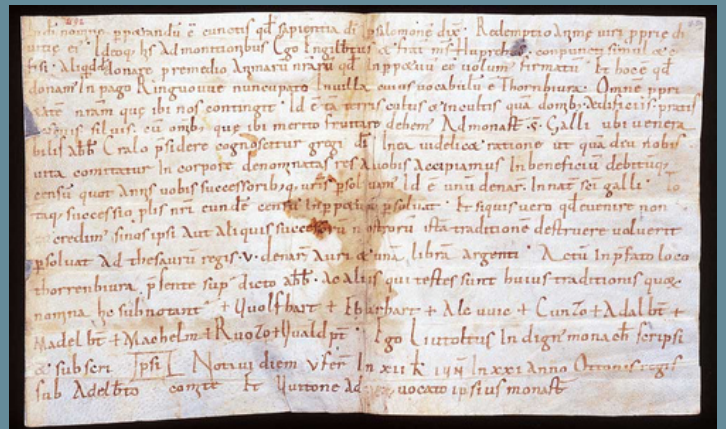 In di nomine pperandū ē cunctis qđ sapientia di p salomonē dix̄. Redemptio animę uiri pprie di
uitię ei. Ideoq; hs Admonitionibus Ego Engilb̄tus & frat̄ ms̄ Huprehs conpuncti simul &
Aliqđ donare premedio Animarū nrārū qđ Inppetuū ēē volum̄ firmatū Et hoc ē qđ
donam̄ In pago Ringouuue nuncupato Inuilla cuius uocabulū ē Thornbiura. Omnē ppri
&atē nrām quę ibi nos contingit. Id ē tā terris cultis & incultis quā domib; ędificiis pratis
siluis. cū omib; quę ibi merito fruituri debem̄ Ad monast̄ s̄. Galli ubi uenera
bilis abb̄ Cralo p̄sidere cognoscitur gregi di. In ea uidelic& ratione ut quā diu nobis
uita comitatur In corpore denominatas res A uobis Accipiamus In beneficiū debitūq;
censū quot Annis uobis successorib;q; uris p̄soluam̄. Id ē unū denar̄. In nat̄ sc̄i galli. To
taq; successio plis nr̄i eundē censū In ppetuū p̄soluat. Et siquis uero qđ euenire non
credim̄ si nos ipsi Aut Aliquis successorū nostrorū istā traditionē destruere uoluerit
p̄soluat Ad thesaurū regis .v. denar̄ Auri & unā librā argenti. Actū In p̄fato loco
thorrenbiura, p̄sente sup̄ dicto abb̄. Ac Aliis qui testes sunt huius traditionis quorū
nomina hę subnotant̄ + Vuolfhart + Eberhart + Alcuuic + Cunzo + Adalb̄t +
Madelb̄t + Machelm + Ruozo + Vualdp̄t. Ego Liutoltus In dign̄ monach̄ scripsi
& subscri psi Notaui diem ꝟ fer̄ In XII k̄ In XXI Anno Ottonis regis
sub Adelb̄to comite Et Vuttone Aduocato ipsius monast̄